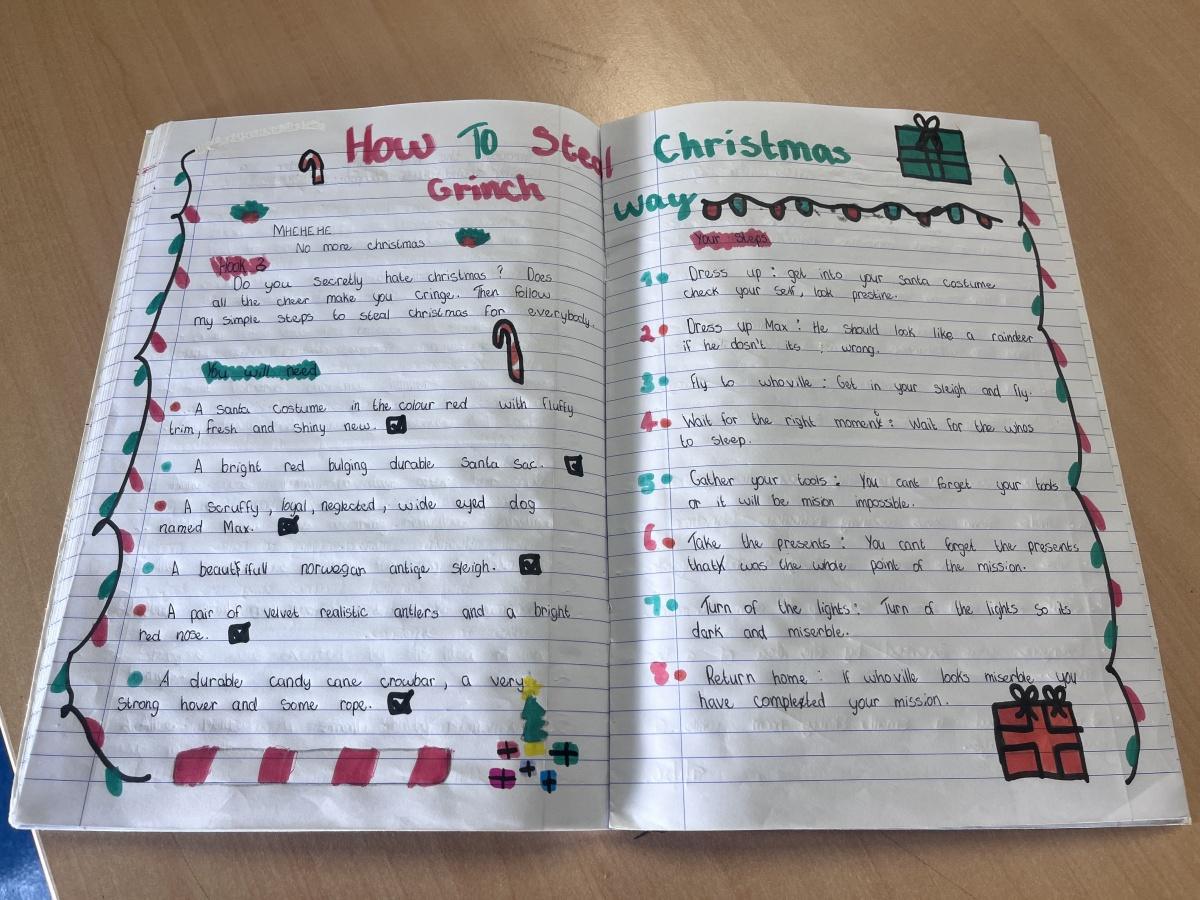 How To Steal Christmas
Grinch way
MHEHEHE
No more christmas
Hook 3
Do you secretly hate christmas? Does
all the cheer make you cringe. Then follow
my simple steps to steal christmas for everybody.
You will need
A santa costume in the colour red with fluffy
trim, fresh and shiny new.
A bright red bulging durable Santa sac.
A scruffy, loyal, neglected, wide eyed dog
named Max.
A beautifull norwegan antiqe sleigh.
A pair of velvet realistic antlers and a bright
red nose.
A durable candy cane crowbar, a very
strong hover and some rope.
Your steps
1. Dress up: get into your santa costume
check your self, look prestine.
2. Dress up Max: He should look like a raindeer
if he dosn't its wrong.
3. Fly to whoville: Get in your sleigh and fly.
4. Wait for the right moment: Wait for the whos
to sleep.
5. Gather your tools: You cant forget your tools
or it will be mision impossible.
6. Take the presents: You cant forget the presents
that was the whole point of the mission.
7. Turn of the lights: Turn of the lights so its
dark and miserble.
8. Return home: if whoville looks miserble you
have completed your mission.